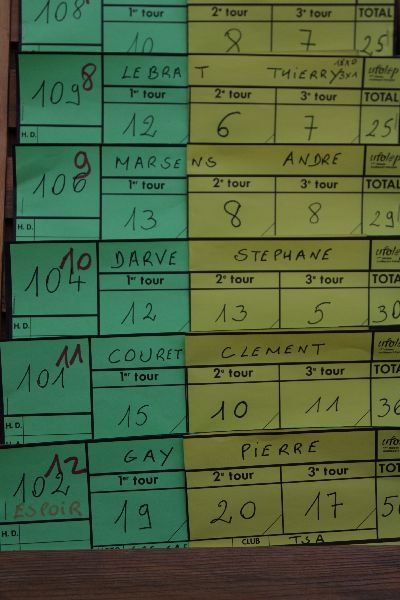 108
1er tour 2e tour 3e tour TOTAL
10 8 7 25
109 8 LEBRAT THIERRY ufolep
1er tour 2e tour 3e tour TOTAL
H.D. 12 6 7 25
106 9 MARSENS ANDRE ufolep
1er tour 2e tour 3e tour TOTAL
H.D. 13 8 8 29
104 10 DARVE STEPHANE ufolep
1er tour 2e tour 3e tour TOTA
H.D. 12 13 5 30
101 11 COURET CLEMENT ufole
1er tour 2e tour 3e tour TOTA
15 10 11 36
102 12 GAY PIERRE ufole
ESPOIR 1er tour 2e tour 3e tour TOT
H.D. 19 20 17
CLUB TSA